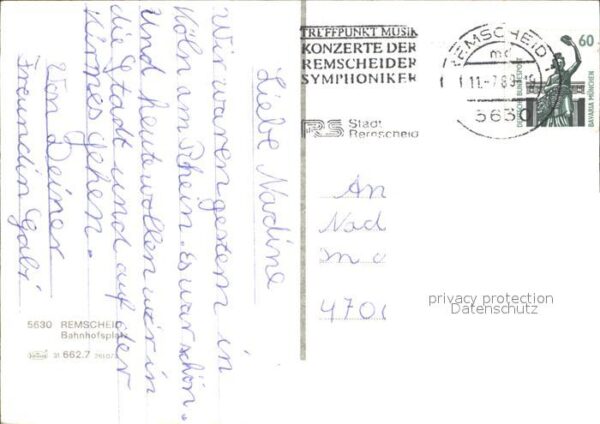 Liebe Nadine
Wir waren gestern in
Köln am Rhein. Es war schön.
Und heute wollen wir in
die Stadt und auf der
Kirmes gehen.
Von Deiner
Freundin Gabi
5630 REMSCHEID
Bahnhofsplatz
21 662.7
TREFFPUNKT MUSIK
KONZERTE DER
REMSCHEIDER
SYMPHONIKER
RS Stadt
Remscheid
REMSCHEID
11.-7.89
5630
60
DEUTSCHE BUNDESPOST
BAVARIA MÜNCHEN
An
Nad
Im
470
privacy protection
Datenschutz